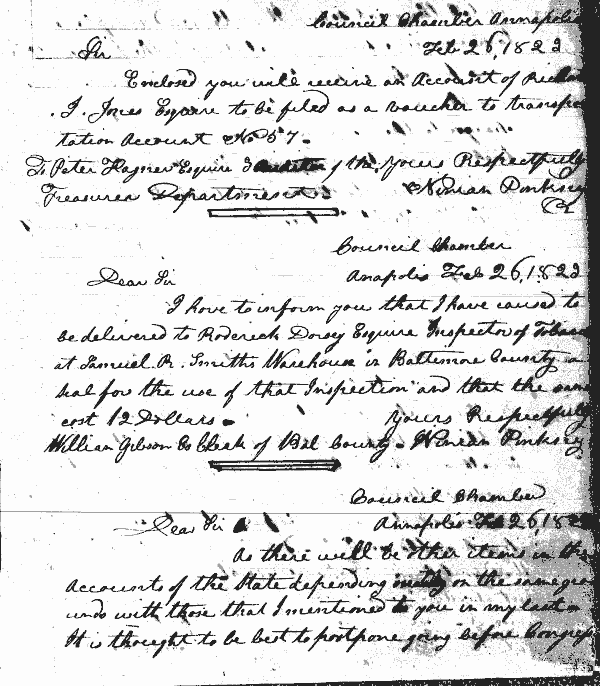 Council Chamber Annapolis
Sir Feb 26, 1823
Enclosed you will receive an Account of
I. Jones Esquire to be filed as a voucher to transpor
tation Account No 57.
To Peter Hagner Esquire 3 of the Yours Respectfully
Treasurer Department. Ninian Pinkney
Council Chamber
Dear Sir Anapolis Feb 26, 1823
I have to inform you that I have caused to
be delivered to Roderick Dorsey Esquire Inspector of Tobacco
at Samuel R. Smiths Warehouse in Baltimore County a
seal for the use of that Inspection and that the same
cost 12 Dollars. Yours Respectfully
William Gibson Es Clerk of Bal County. Ninian Pinkney
Council Chamber
Dear Sir Annapolis Feb 26, 182
As there will be other items in the
Accounts of the State depending on the same gro
unds with those that I mentioned to you in my last
It is thought to be best to postpone going before Congress